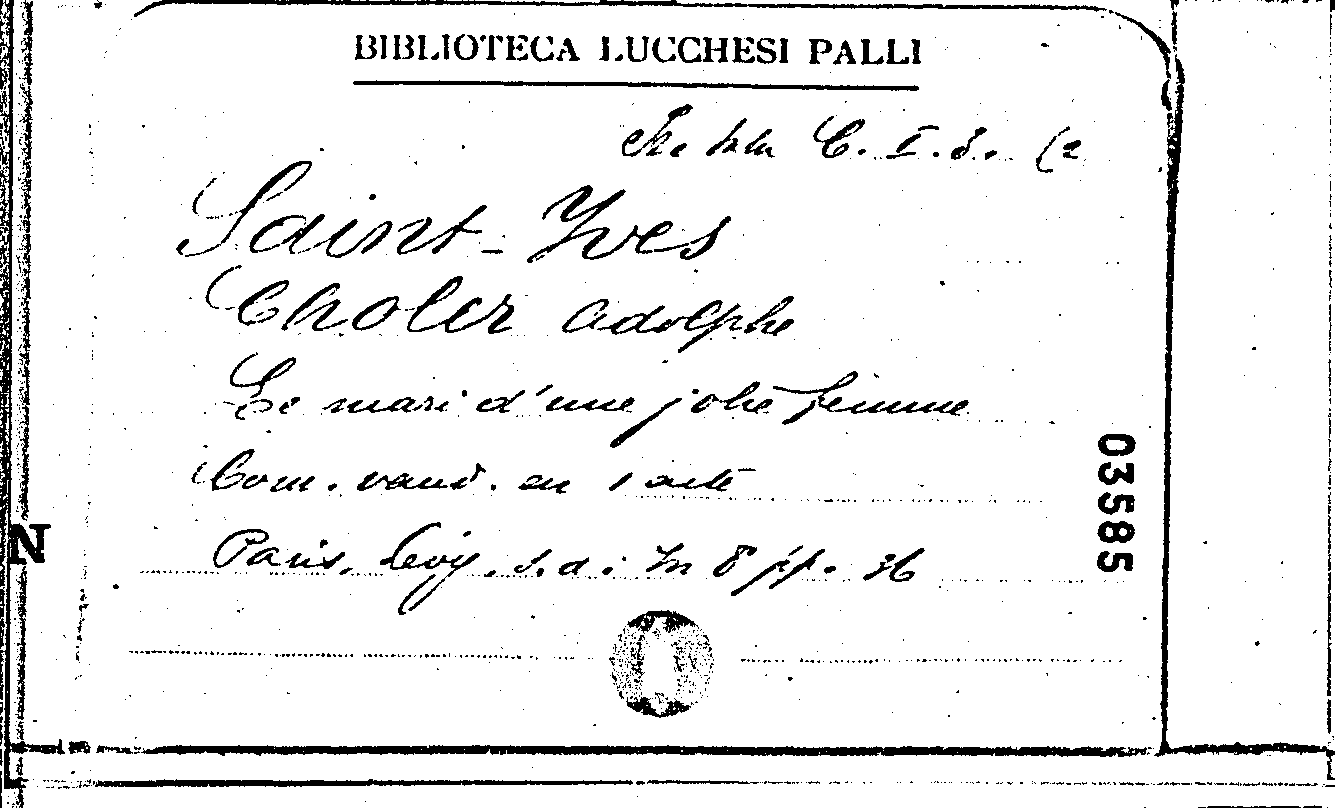 BIBLIOTECA LUCCHESI PALLI
C. I. 8. (2
Saint-Yves
Choler Adolphe
Le mari d'une jolie femme
Com. vaud. en 1 acte
Paris, Levy, s. d. in 8° pp. 36
03585
N